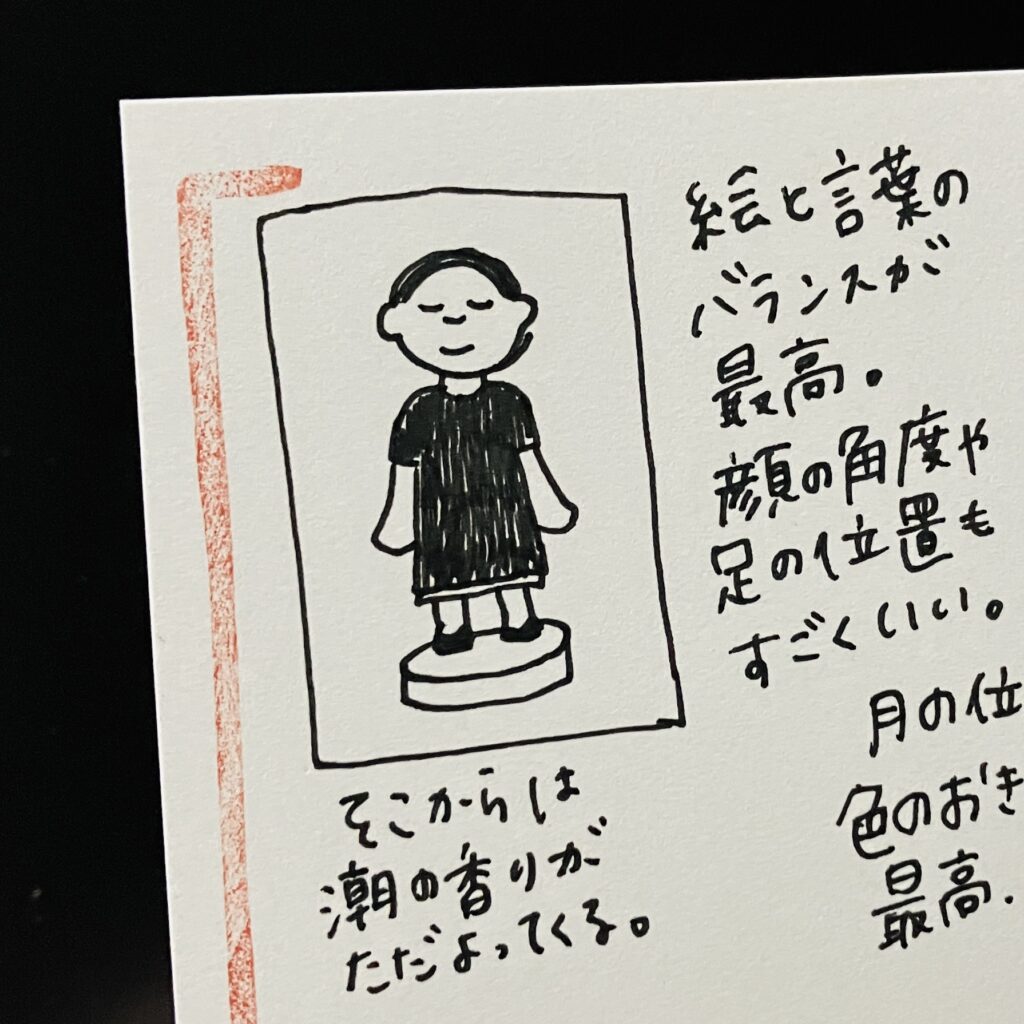 絵と言葉の
バランスが
最高。
顔の角度や
足の位置も
すごくいい。
月の位
色のおき
最高.
そこからは
潮の香りが
ただよってくる。